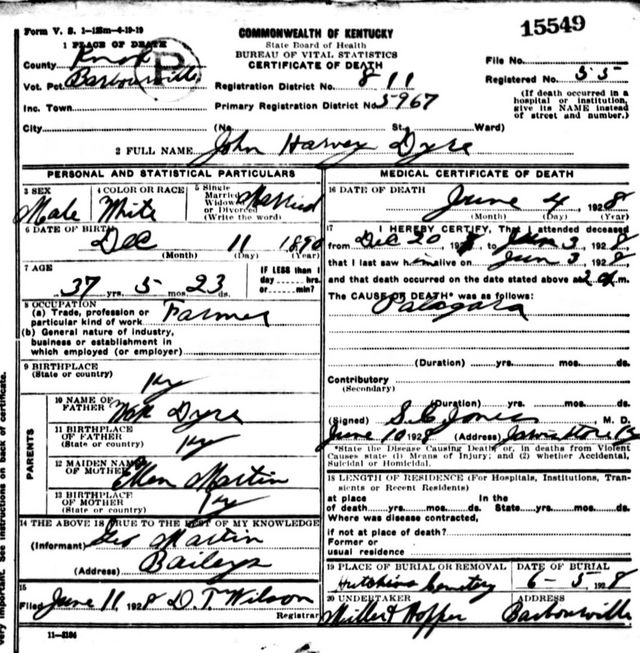 Form V. S. 1-125m-4-19-19
15549
COMMONWEALTH OF KENTUCKY
State Board of Health
BUREAU OF VITAL STATISTICS
CERTIFICATE OF DEATH
1 PLACE OF DEATH
County Knox
Vot. Pct. Barbourville
Inc. Town
City
P
Registration District No. 811
Primary Registration District No. 5967
(No. St. Ward)
File No.
Registered No. 55
(If death occurred in a
hospital or institution,
give its NAME instead
of street and number.)
2 FULL NAME John Harvey Dyre
PERSONAL AND STATISTICAL PARTICULARS
3 SEX
Male
4 COLOR OR RACE
White
5 Single
Married
Widowed
or Divorced
(Write the word)
Married
6 DATE OF BIRTH
Dec 11 1890
(Month) (Day) (Year)
7 AGE
37 yrs. 5 mos. 23 ds.
IF LESS than 1
day hrs.
or min?
8 OCCUPATION
(a) Trade, profession or
particular kind of work Farmer
(b) General nature of industry,
business or establishment in
which employed (or employer)
9 BIRTHPLACE
(State or country)
Ky
PARENTS
10 NAME OF
FATHER Dyre
11 BIRTHPLACE
OF FATHER
(State or country) Ky
12 MAIDEN NAME
OF MOTHER Ellen Martin
13 BIRTHPLACE
OF MOTHER
(State or country) Ky
14 THE ABOVE IS TRUE TO THE BEST OF MY KNOWLEDGE
(Informant) Geo Martin
(Address) Baileys
15
Filed June 11 1928 D. T. Wilson
Registrar
11-3184
MEDICAL CERTIFICATE OF DEATH
16 DATE OF DEATH
June 4, 1928
(Month) (Day) (Year)
17 I HEREBY CERTIFY, That I attended deceased
from Dec 20 to Jun 3, 1928
that I last saw him alive on Jun 3, 1928
and that death occurred on the date stated above at 2 m.
The CAUSE OF DEATH* was as follows:
Palagara
(Duration) yrs. mos. ds.
Contributory
(Secondary)
(Duration) yrs. mos. ds.
(Signed) S. C. Jones M. D.
June 10 1928 (Address)
*State the Disease Causing Death, or, in deaths from Violent
Causes state (1) Means of Injury; and (2) whether Accidental,
Suicidal or Homicidal.
18 LENGTH OF RESIDENCE (For Hospitals, Institutions, Tran-
sients or Recent Residents)
at place In the
of death yrs. mos. ds. State yrs. mos. ds.
Where was disease contracted,
if not at place of death?
Former or
usual residence
19 PLACE OF BURIAL OR REMOVAL
Hutchins Cemetery
DATE OF BURIAL
6-5 1928
20 UNDERTAKER
Millert Hopper
ADDRESS
Barbourville
very important. See instructions on back of certificate.